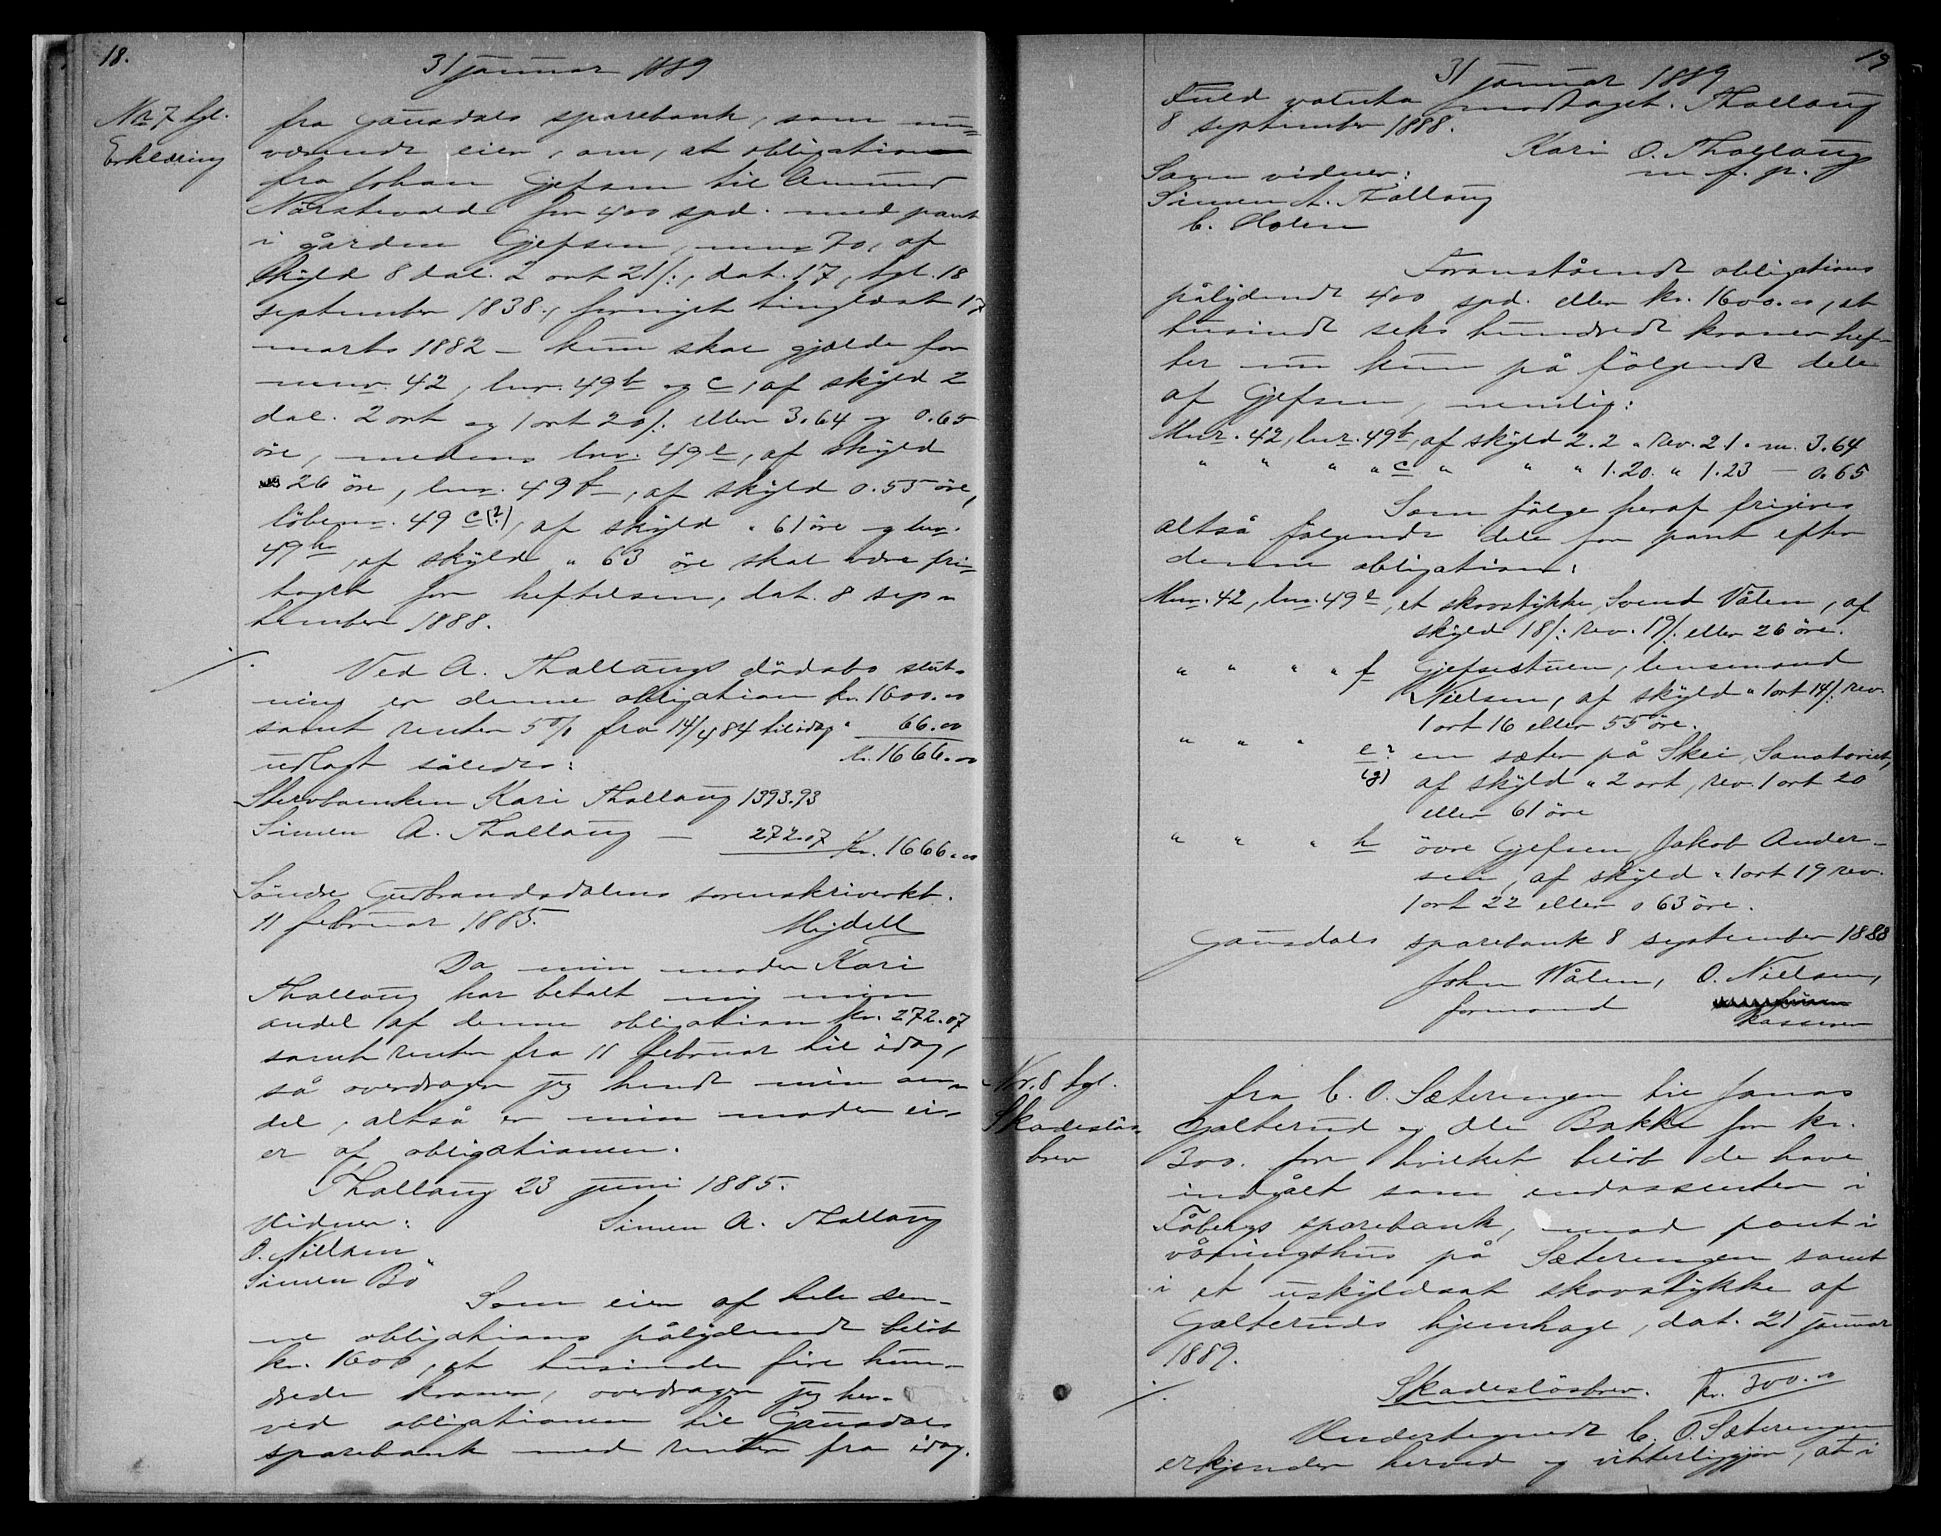 18.
31 januar 1889
Nr 7 tgl.
Erklæring
fra Gausdals sparebank, som nu-
værende eier, om, at obligation
fra Johan Gjefsen til Amund
Nørstevold for 400 spd. med pant
i gården Gjefsen, mnr 70, af
skyld 8 dal. 2 ort 21 /:, dat. 17, tgl. 18
september 1838, fornyet tinglæst 17
marts 1882 – kun skal gjælde for
mnr. 42, lnr. 49b og c, af skyld 2
dal. 2 ort og 1 ort 20 /: eller 3.64 og 0.65
øre, medens lnr. 49e, af skyld
26 øre, lnr. 49f, af skyld 0.55 øre,
løbenr. 49 e(?), af skyld " 61 øre og lnr.
49h, af skyld " 63 øre skal være fri-
taget for heftelsen, dat. 8 sep-
tember 1888.
./.
Ved A. Thallaugs dødsbo slut-
ning er denne obligation kr. 1600.00
samt renter 5% fra 14/4 84 til idag " 66.00
udlagt således: kr. 1666.00
Stervboenken Kari Thallaug 1393.93
Simen A. Thallaug — 272.07 Kr. 1666.00
Søndre Gudbrandsdalens sorenskriverkt.
11 februar 1885. Mejdell
Da min moder Kari
Thallaug har betalt mig min
andel af denne obligation kr. 272.07
samt renter fra 11 februar til idag,
så overdrager jeg hende min an-
del, altså er min moder ei-
er af obligationen.
Thallaug 23 juni 1885.
Vidner: Simen A. Thallaug
O. Nielsen
Simen Bø
Som eier af hele den-
ne obligations pålydende beløb
kr. 1600, et tusinde fire hun-
drede kroner, overdrager jeg her-
ved obligationen til Gausdals
sparebank med renter fra idag.
19
31 januar 1889
Fuld valuta modtaget. Thallaug
8 september 1888.
Kari O. Thallaug
m. f. p.
Som vidner:
Simen A. Thallaug
C. Holen
Foranstående obligations
pålydende 400 spd. eller kr. 1600.00, et
tusinde seks hundrede kroner hef-
ter nu kun på følgende dele
af Gjefsen, nemlig:
Mnr. 42, lnr. 49b, af skyld 2.2 " rev. 2.1 " m. 3.64
" " " " c " " " 1.20. " 1.23 — 0.65
Som følge heraf frigives
altså følgende dele for pant efter
denne obligation:
Mnr. 42, lnr. 49e, et skovstykke, Svend Vålen, af
skyld 18 /: rev. 19 /: eller 26 øre.
" " " " f Gjefsestuen, lensmand
Nielsen, af skyld " 1 ort 14 /: rev.
1 ort 16 eller 55 øre.
" " " e? en sæter på Skei, Sanatoriet,
(g) af skyld " 2 ort, rev. 1 ort 20
eller 61 øre
" " " h øvre Gjefsen, Jakob Ander-
sen, af skyld " 1 ort 19 rev.
1 ort 22 eller 0 63 øre.
Gausdals sparebank 8 september 1888
John Wålen, O. Nielsen,
formand
kasserer
Nr. 8 tgl.
Skadesløs-
brev
fra C. O. Sæteringen til Jonas
Galterud og Ole Bakke for kr.
300. for hvilket beløb de have
indgået som endossenter i
Fåbergs sparebank, mod pant i
våningshus på Sæteringen samt
i et uskyldsat skovstykke af
Galteruds hjemhage, dat. 21 januar
1889.
./.
Skadesløsbrev. Kr. 300.00
Undertegnede C. O. Sæteringen
erkjender herved og vitterliggjør, at i